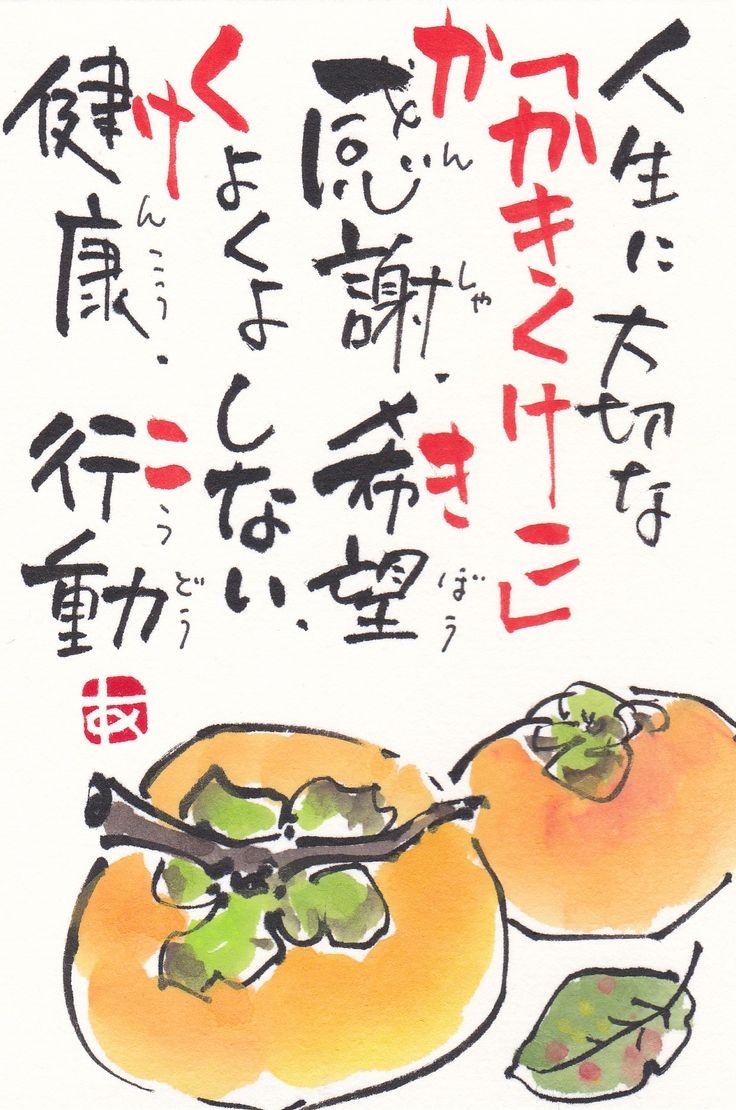 人生に大切な
「かきくけこ」
感謝・希望
かんしゃ きぼう
くよくよしない、
健康・行動
けんこう こうどう